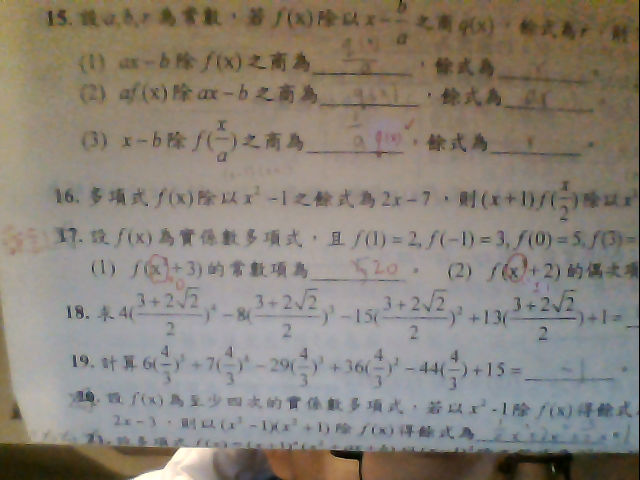 15. 設a,b,r為常數，若f(x)除以x-b/a之商q(x)，餘式為r，則
(1) ax-b除f(x)之商為 q(x)/a ，餘式為 r 。
(2) af(x)除ax-b之商為 q(x) ，餘式為 ar 。
(3) x-b除f(x/a)之商為 1/a q(x) ，餘式為 r 。
16. 多項式f(x)除以x²-1之餘式為2x-7，則(x+1)f(x/2)除以x
17. 設f(x)為實係數多項式，且f(1)=2, f(-1)=3, f(0)=5, f(3)=
(1) f(x+3)的常數項為 20 。 (2) f(x+2)的偶次項
18. 求4((3+2√2)/2)⁴-8((3+2√2)/2)³-15((3+2√2)/2)²+13((3+2√2)/2)+1=
19. 計算6(4/3)⁵+7(4/3)⁴-29(4/3)³+36(4/3)²-44(4/3)+15= -1 。
20. 設f(x)為至少四次的實係數多項式，若以x²-1除f(x)得餘式
2x-3，則以(x²-1)(x²+1)除f(x)得餘式為